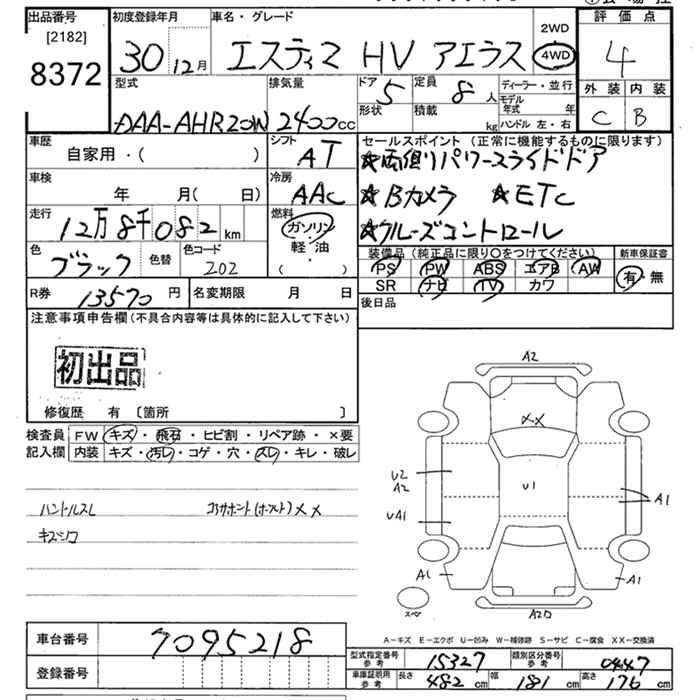 出品番号
[2182]
8372
初度登録年月
30 12月
車名・グレード
エスティマ HV アエラス
2WD
4WD
評価点
4
外装 内装
C B
型式
DAA-AHR20W
排気量
2400cc
ドア 5
形状
定員 8人
積載 kg
ディーラー・並行
モデル年式 年
ハンドル 左・右
車歴
自家用・( )
シフト
AT
セールスポイント (正常に機能するものに限ります)
★両側リパワースライドドア
★Bカメラ ★ETC
★クルーズコントロール
車検
年 月( 日)
冷房
AAC
走行
12万8千082 km
燃料
ガソリン
・
軽・油
・
( )
色
ブラック
色替
色コード
202
装備品 (純正品に限り○をつけてください)
PS PW ABS エアB AW
SR ナビ TV カワ
新車保証書
有・無
R券 13570円
名変期限 月 日
後日品
注意事項申告欄(不具合内容等は具体的に記入して下さい)
初出品
修復歴 有 〔箇所 〕
検査員記入欄
FW キズ・飛石・ヒビ割・リペア跡・×要
内装 キズ・汚レ・コゲ・穴・スレ・キレ・破レ
ハンドルスレ
コアサポート(ホースト)××
キズシワ
A2
××
U2
A2
U1
A1
UA1
A1
A1
スペ
A2
車台番号 7095218
登録番号
A−キズ E−エクボ U−凹み W−補修跡 S−サビ C−腐食 XX−交換済
型式指定番号 参考 15327
類別区分番号 参考 0447
車庫証明用 参考 長さ 482 cm 幅 181 cm 高さ 176 cm